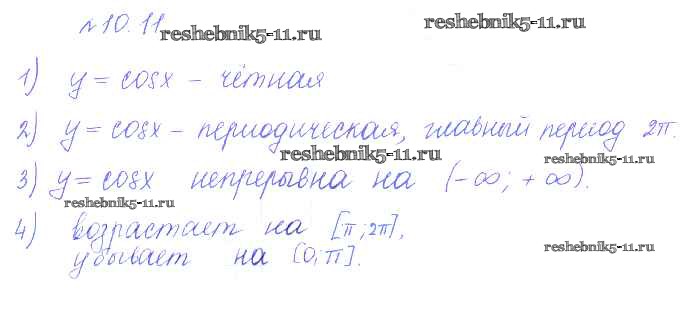 №10.11
reshebnik5-11.ru reshebnik5-11.ru
1) y = cosx – чётная
2) y = cosx – периодическая, главный период 2π.
reshebnik5-11.ru reshebnik5-11.ru
3) y = cosx непрерывна на (-∞; +∞).
reshebnik5-11.ru
4) возрастает на [π; 2π],
убывает на [0; π].
reshebnik5-11.ru